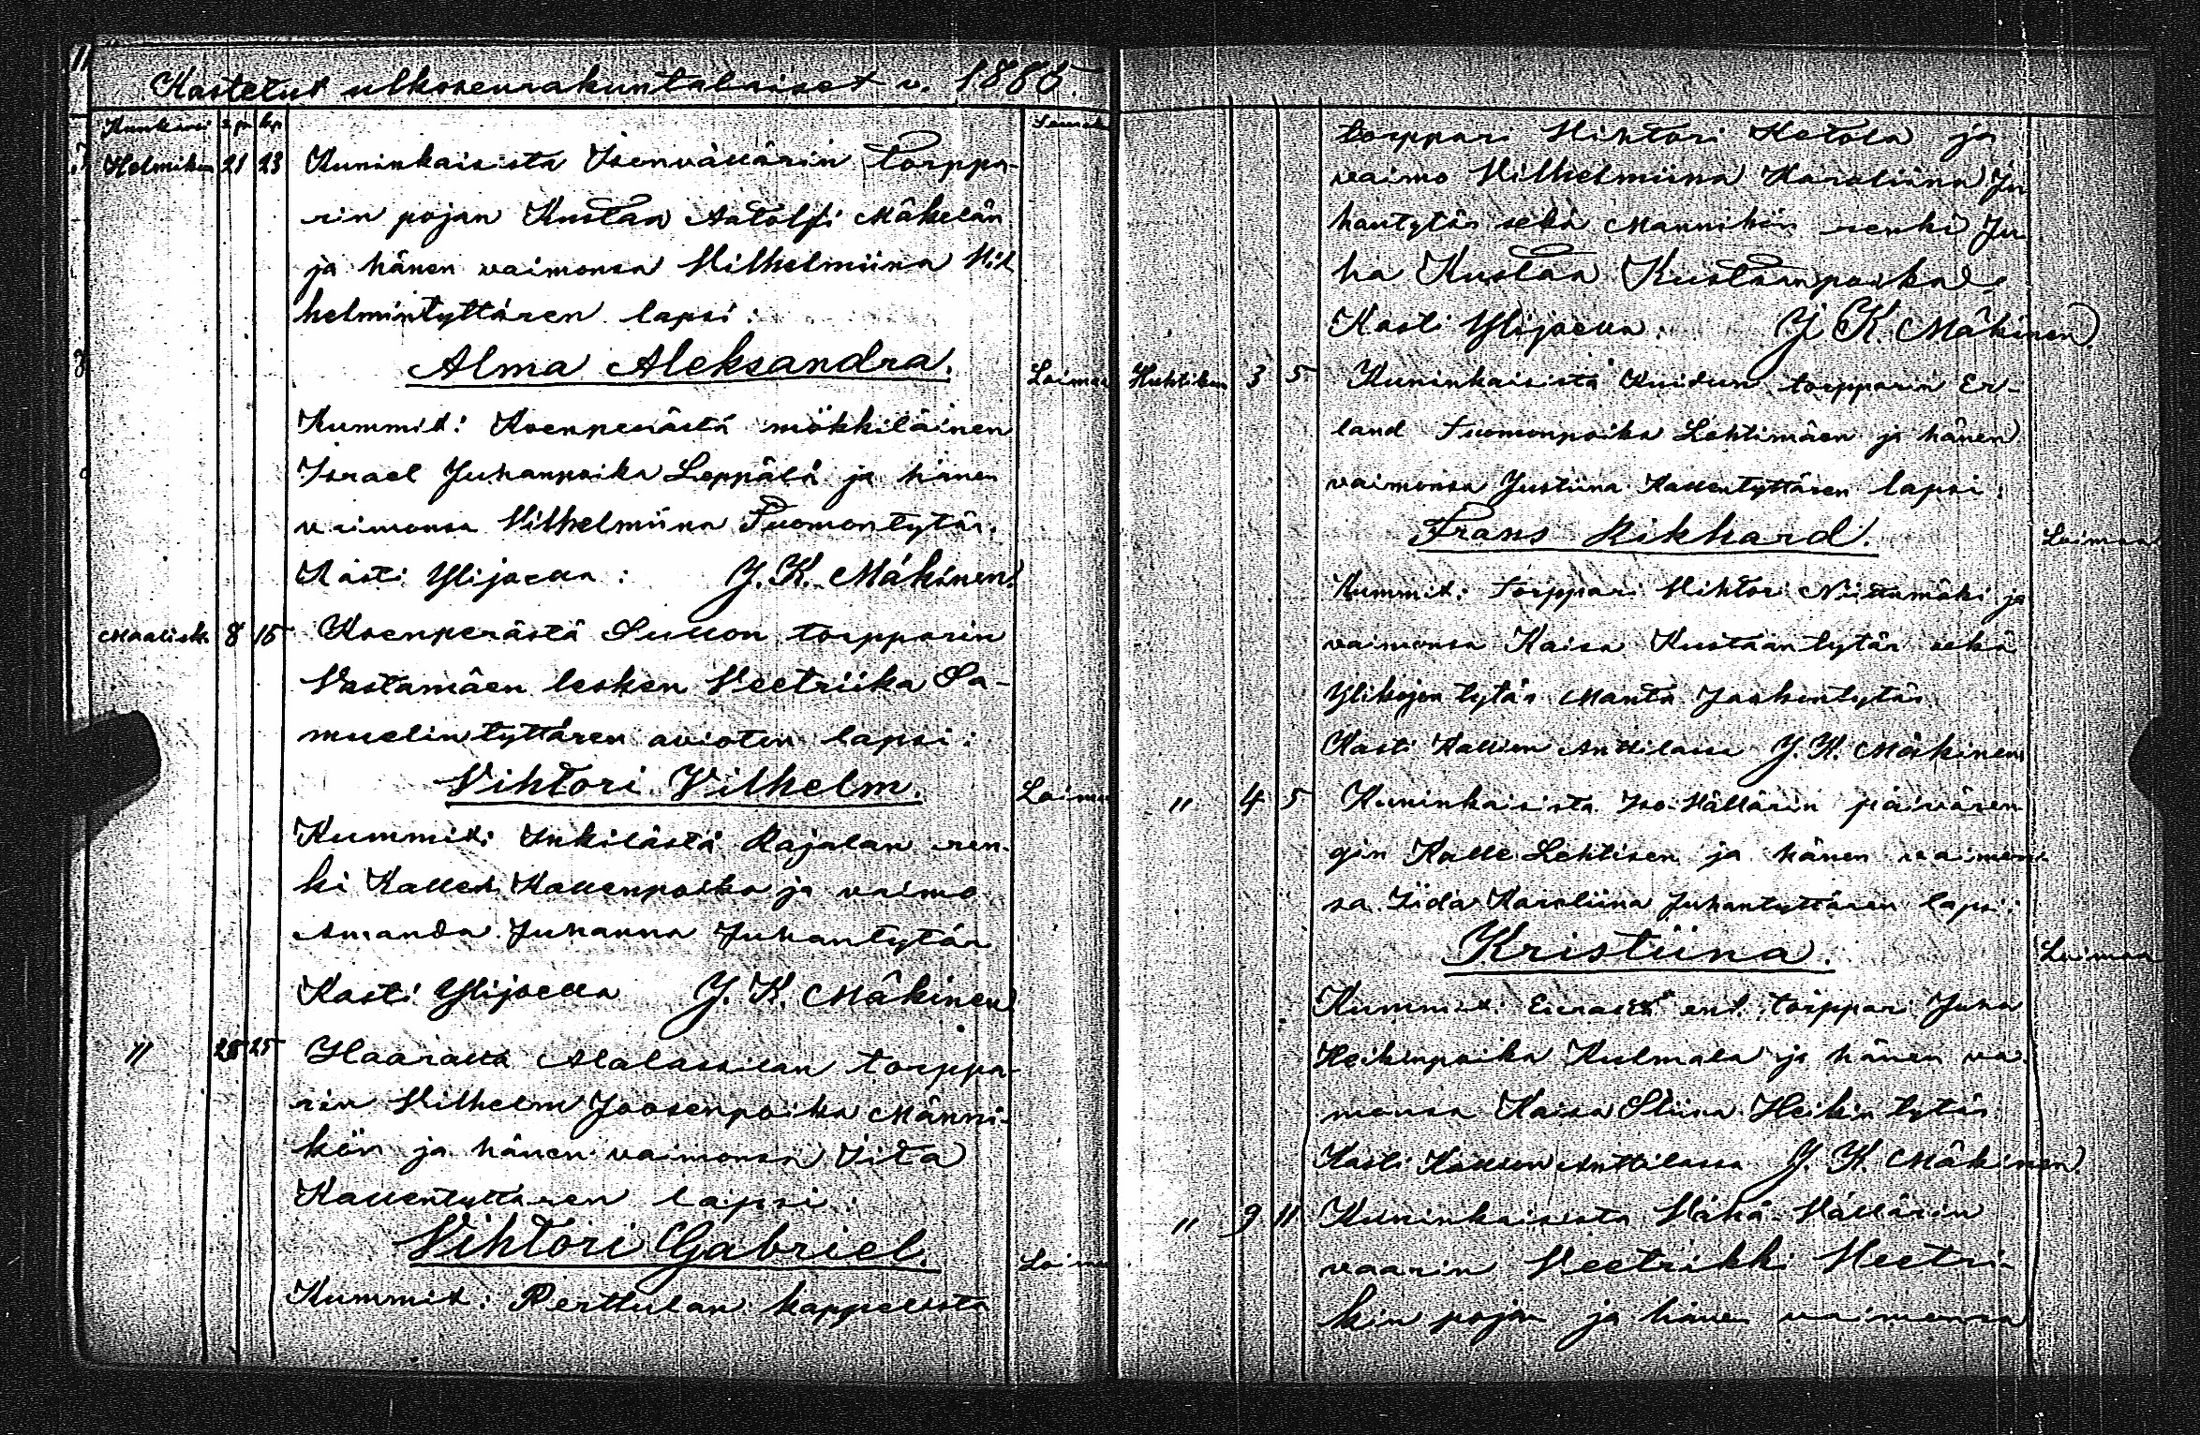 Kastetut ulkoseurakuntalaiset v. 1886.
Kuukausi s.p. k.p. Seurak.
Helmikuu 21 23 Kuninkaisista Isenvällärin torppa-
rin pojan Kustaa Aatolfi Mäkelän
ja hänen vaimonsa Vilhelmiina Vil
helmintyttären lapsi:
Alma Aleksandra. Loimaa
Kummit: Koenperästä mökkiläinen
Israel Juhanpoika Leppälä ja hänen
vaimonsa Vilhelmiina Tuomontytär.
Kasti Ylijoella: J. K. Mäkinen.
Maalisk. 8 15 Koenperästä torpparin
Vastamäen lesken Veetriika Sa-
muelintyttären avioton lapsi:
Vihtori Vilhelm. Loimaa
Kummit: Inkilästä Rajalan ren-
ki Kallenpoika ja vaimo
Amanda Juhanna Juhantytär
Kasti Ylijoella J. K. Mäkinen
" 25 Alalassilan torppa-
rin Vilhelm Joosenpoika Männi-
kön ja hänen vaimonsa Iita
Kallentyttären lapsi:
Vihtori Gabriel. Loimaa
Kummit: Perttulan kappelista
torppari Vihtori Ketola ja
vaimo Vilhelmiina Karoliina Ju
hantytär sekä Mannikön renki Ju
ha Kustaa Kustaanpoika
Kasti Ylijoella: J. K. Mäkinen.
Huhtikuu 3 5 Kuninkaisista torpparin Er-
land Tuomonpoika Lehtimäen ja hänen
vaimonsa Justiina Kallentyttären lapsi:
Frans Rikhard. Loimaa
Kummit: torppari Vihtori Niittumäki ja
vaimonsa Kaisa Kustaantytär sekä
tytär Manta Jaakontytär
Kasti Anttilassa J. K. Mäkinen
" 4 5 Kuninkaisista Iso-Vällärin päivären
gin Kalle Lehtisen ja hänen vaimon
sa Iida Karoliina Juhantyttären lapsi:
Kristiina. Loimaa
Kummit: ent. torppari Juha
Heikinpoika Kulmala ja hänen vai
monsa Kaisa Stiina Heikintytär
Kasti Anttilassa J. K. Mäkinen
" 9 11 Kuninkaisista Vähä-Vällärin
vaarin Veetrikki Veetri-
kin pojan ja hänen vaimonsa